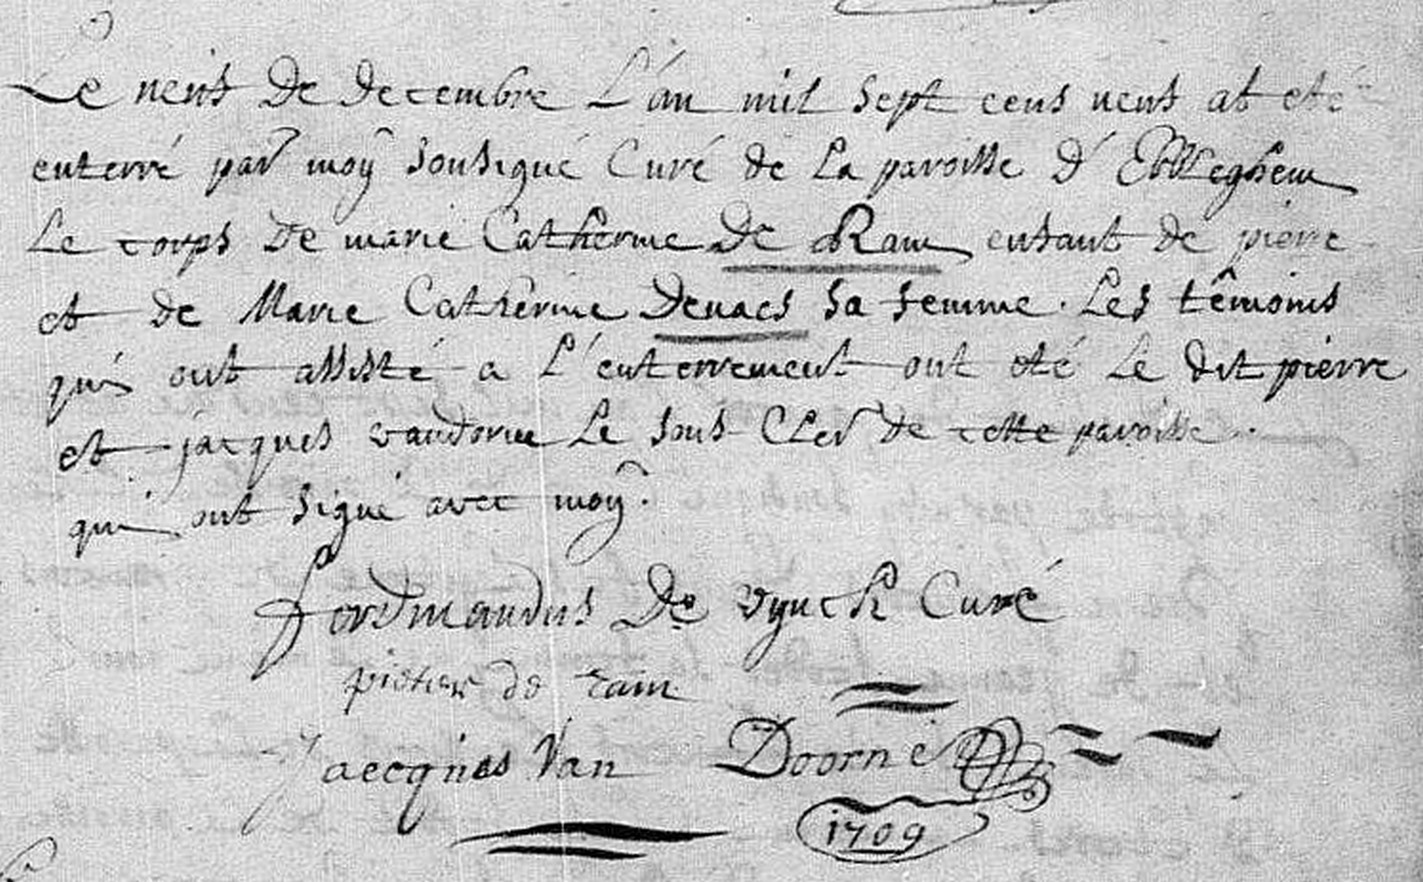 Le neuf de decembre L'an mil sept cens neuf at eté
enterré par moy sousigné Curé de La paroisse d'
Le corps de marie Catherine De Ram enfant de pierre
et de Marie Catherine Denaes sa femme. Les têmoins
qui ont assisté a L'enterrement ont eté Le dit pierre
et jacques vandorne Le sous Cler de cette paroisse.
qui ont signé avec moy.
ferdinandus De vynck Curé
pieter de ram
Jaecques Van Doorne
1709